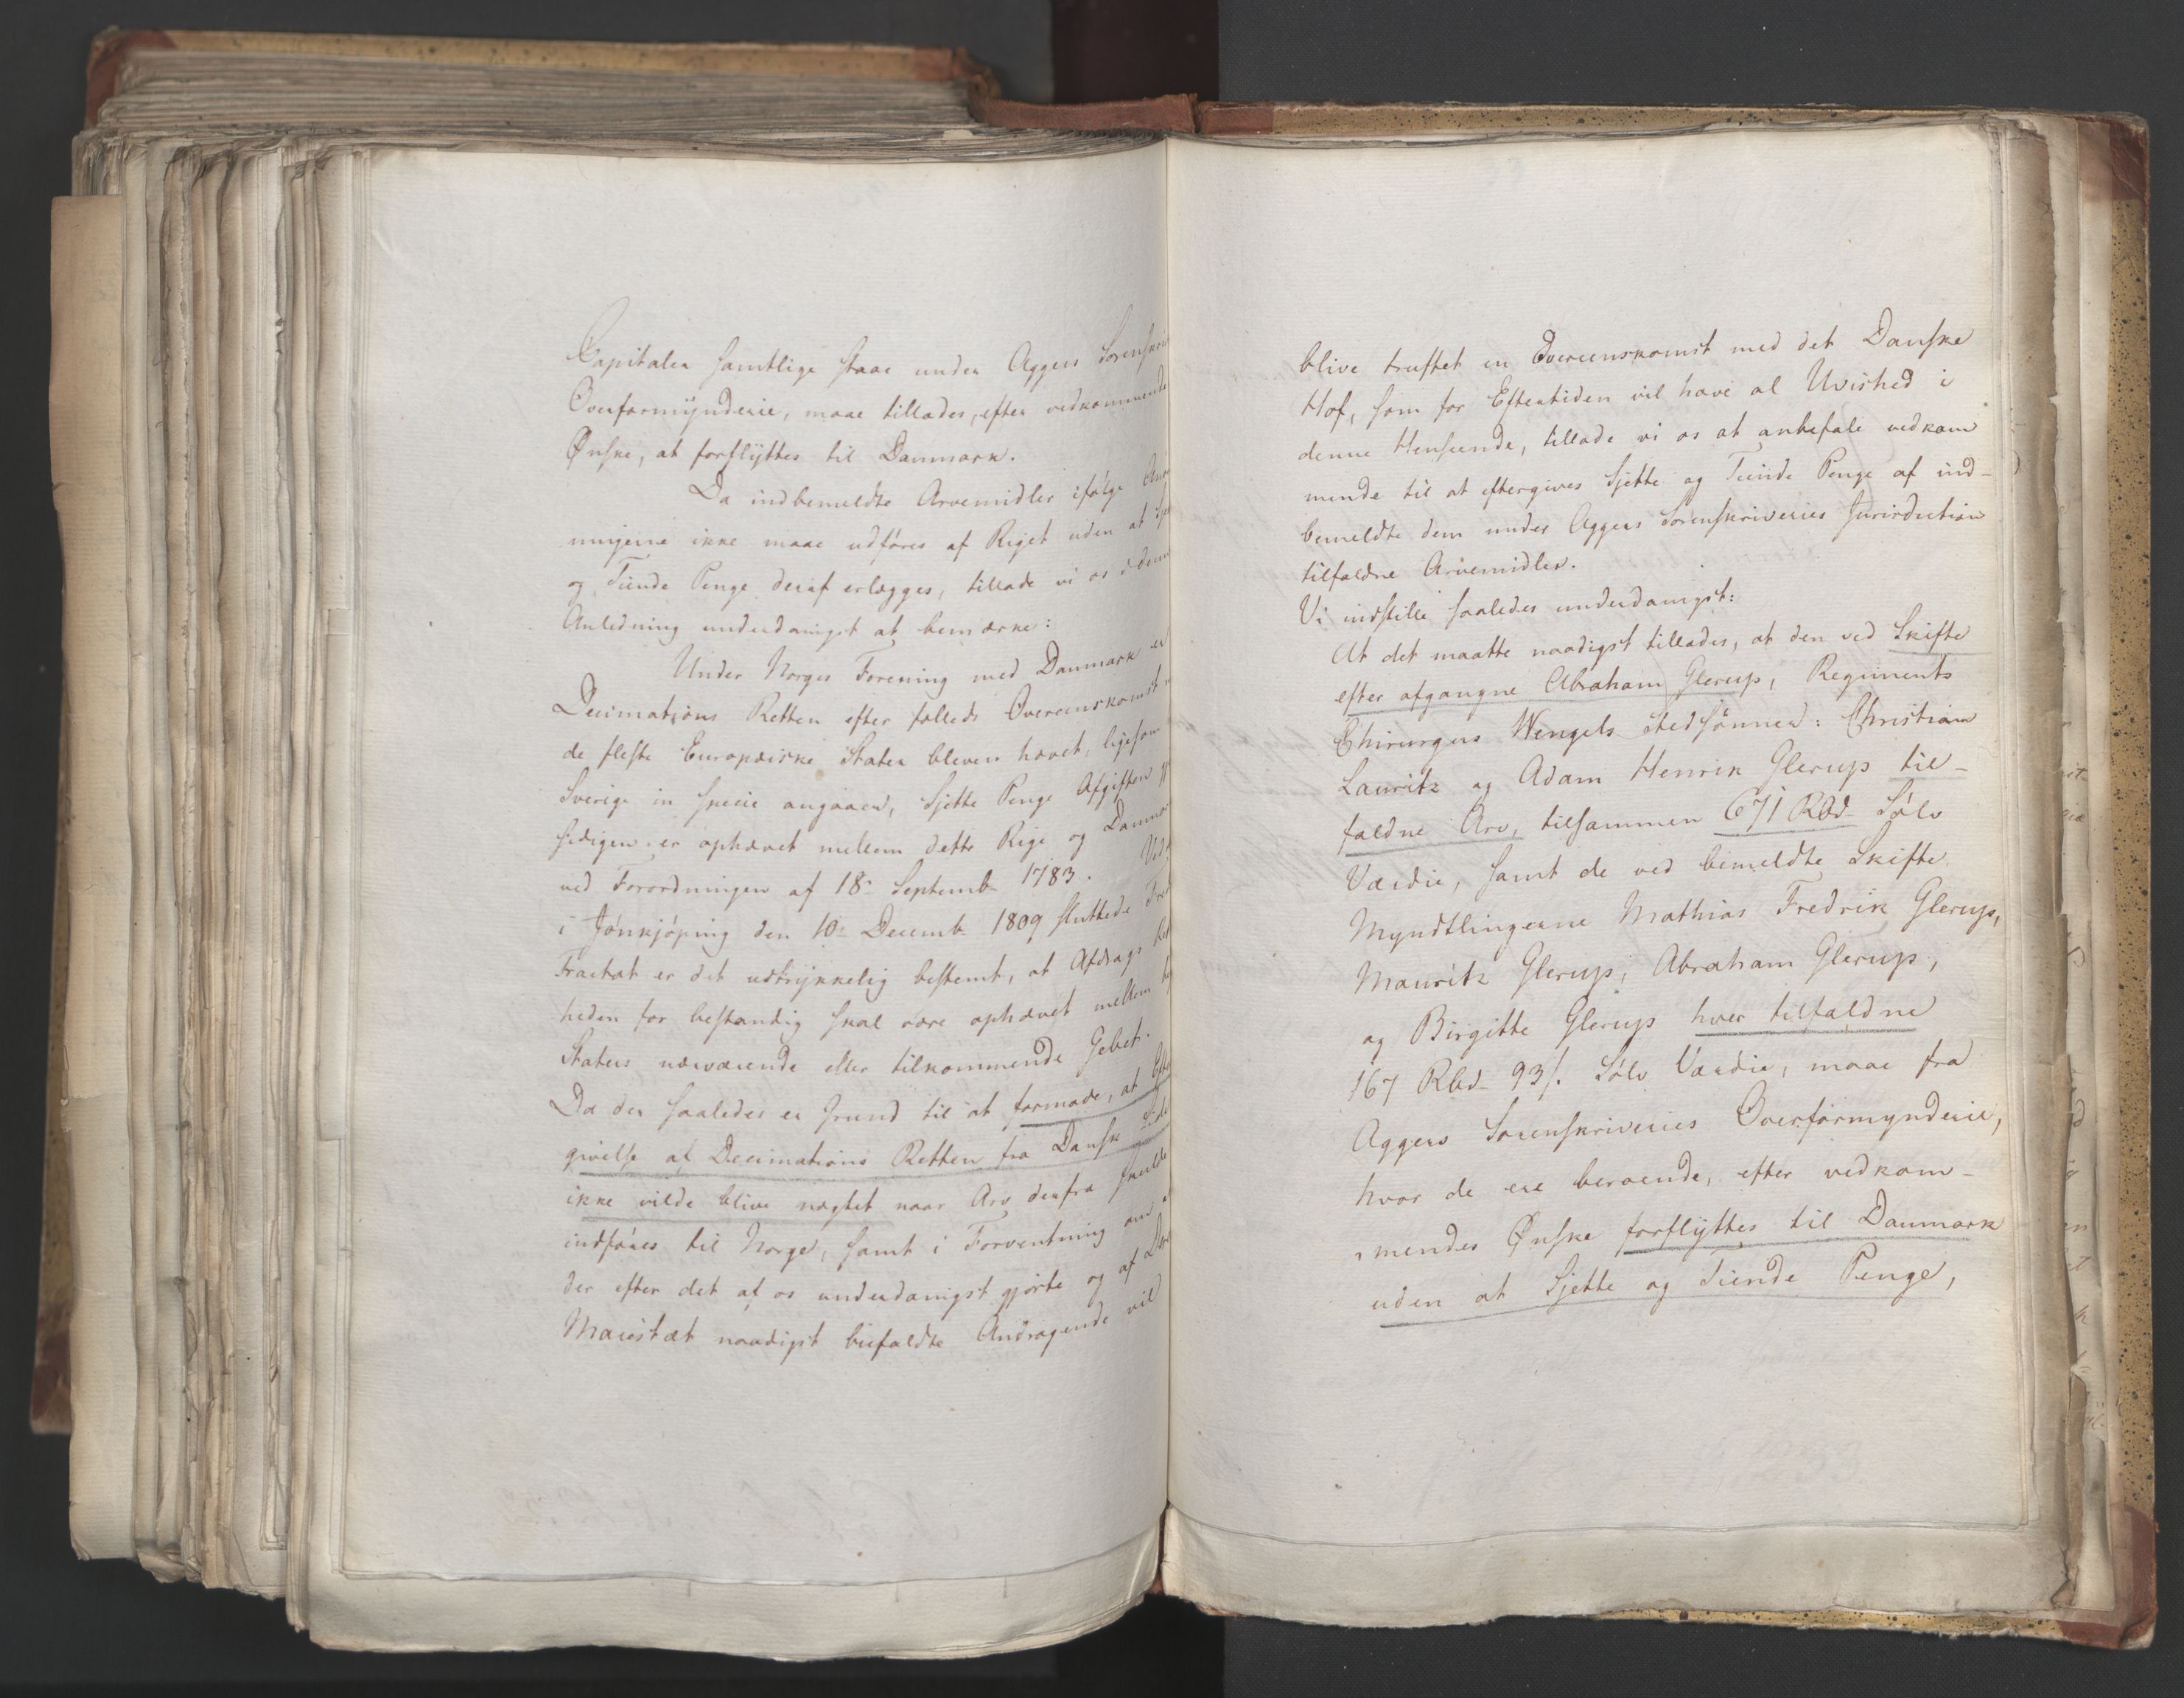 Capitaler samtlige staae under Aggers Sorenskri
Overformÿnderie, maae tillades, efter vedkommende
Ønske, at forflÿttes til Danmark.
Da indbemeldte Arvemidler ifølge
ningerne ikke maae udføres af Riget uden at
og Tiende Penge deraf erlægges, tillade vi os i denne
Anledning underdanigst at bemærke:
Under Norges Forening med Danmark er
Decimations Retten efter fælleds Overeenskomst
de fleste Europæiske Stater bleven hævet, ligesom
Sverige in specie angaaer, Sjette Penge Afgiften
sidigen er ophævet mellem dette Rige og Danmar
ved Forordningen af 18de Septembr 1783. Ved
i Jönkjöping den 10de Decembr 1809 sluttede Fred
Tractat er det udtrÿkkelig bestemt, at Afdrags Ret
heden for bestandig skal være ophævet mellem
Staters nærværende eller tilkommende Gebet.
Da der saaledes er Grund til at formode, at Efter
givelse af Decimations Retten fra Dansk Side
ikke vilde blive nægtet naar Arv derfra skulde
indføres til Norge, samt i Forventning om
der efter det af os underdanigst gjorte og af
Majestæt naadigst bifaldte Andragende vil
blive truffet en Overeenskomst med det Danske
Hof, som for Eftertiden vil hæve al Uvished i
denne Henseende, tillade vi os at anbefale vedkom
mende til at eftergives Sjette og Tiende Penge af ind-
bemeldte dem under Aggers Sorenskriveries Jurisdiction
tilfaldne Arvemidler.
Vi indstille saaledes underdanigst:
At det maatte naadigst tillades, at den ved Skifte
efter afgangne Abraham Glerup, Regiments
Chirurgus Wengels Stedsønner: Christian
Lauritz og Adam Henrik Glerup til-
faldne Arv, tilsammen 671 Rbd Sølv
Værdie, samt de ved bemeldte Skifte
Myndtlingerne Mathias Fredrik Glerup,
Mauritz Glerup, Abraham Glerup,
og Birgitte Glerup hver tilfaldne
167 Rbd 93 s. Sølv Værdie, maae fra
Aggers Sorenskriveries Overformynderie,
hvor de ere beroende, efter vedkom-
mendes Ønske forflÿttes til Danmark
uden at Sjette og Tiende Penge,